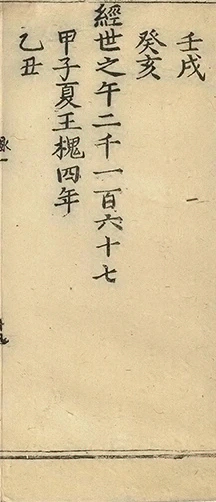 壬戌
癸亥
經世之午二千一百六十七
甲子夏王槐四年
乙丑